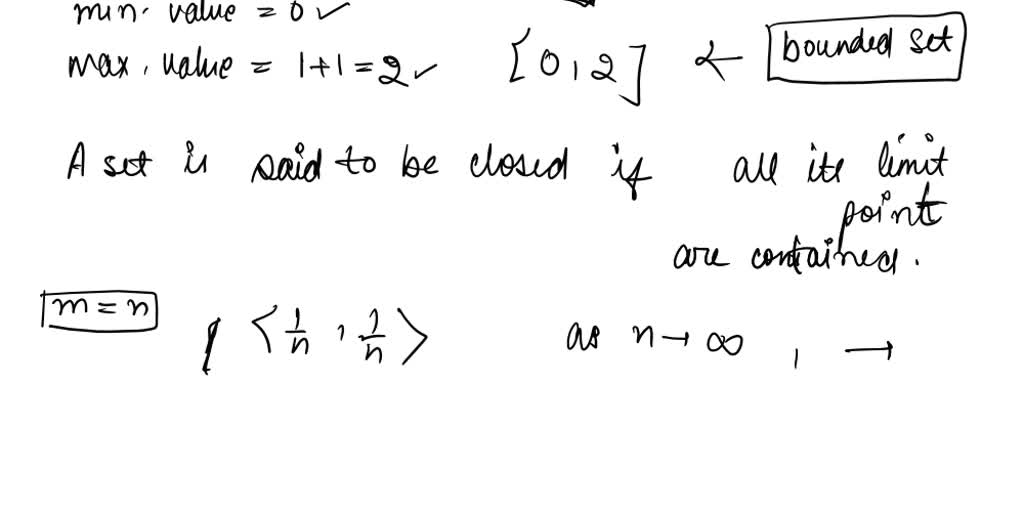 min. value = 0 ✓
max. value = 1+1 = 2 ✓ [0, 2] ← bounded set
A set is said to be closed if all its limit
point
are contained.
m = n ⟨1/n, 1/n⟩ as n → ∞ , →